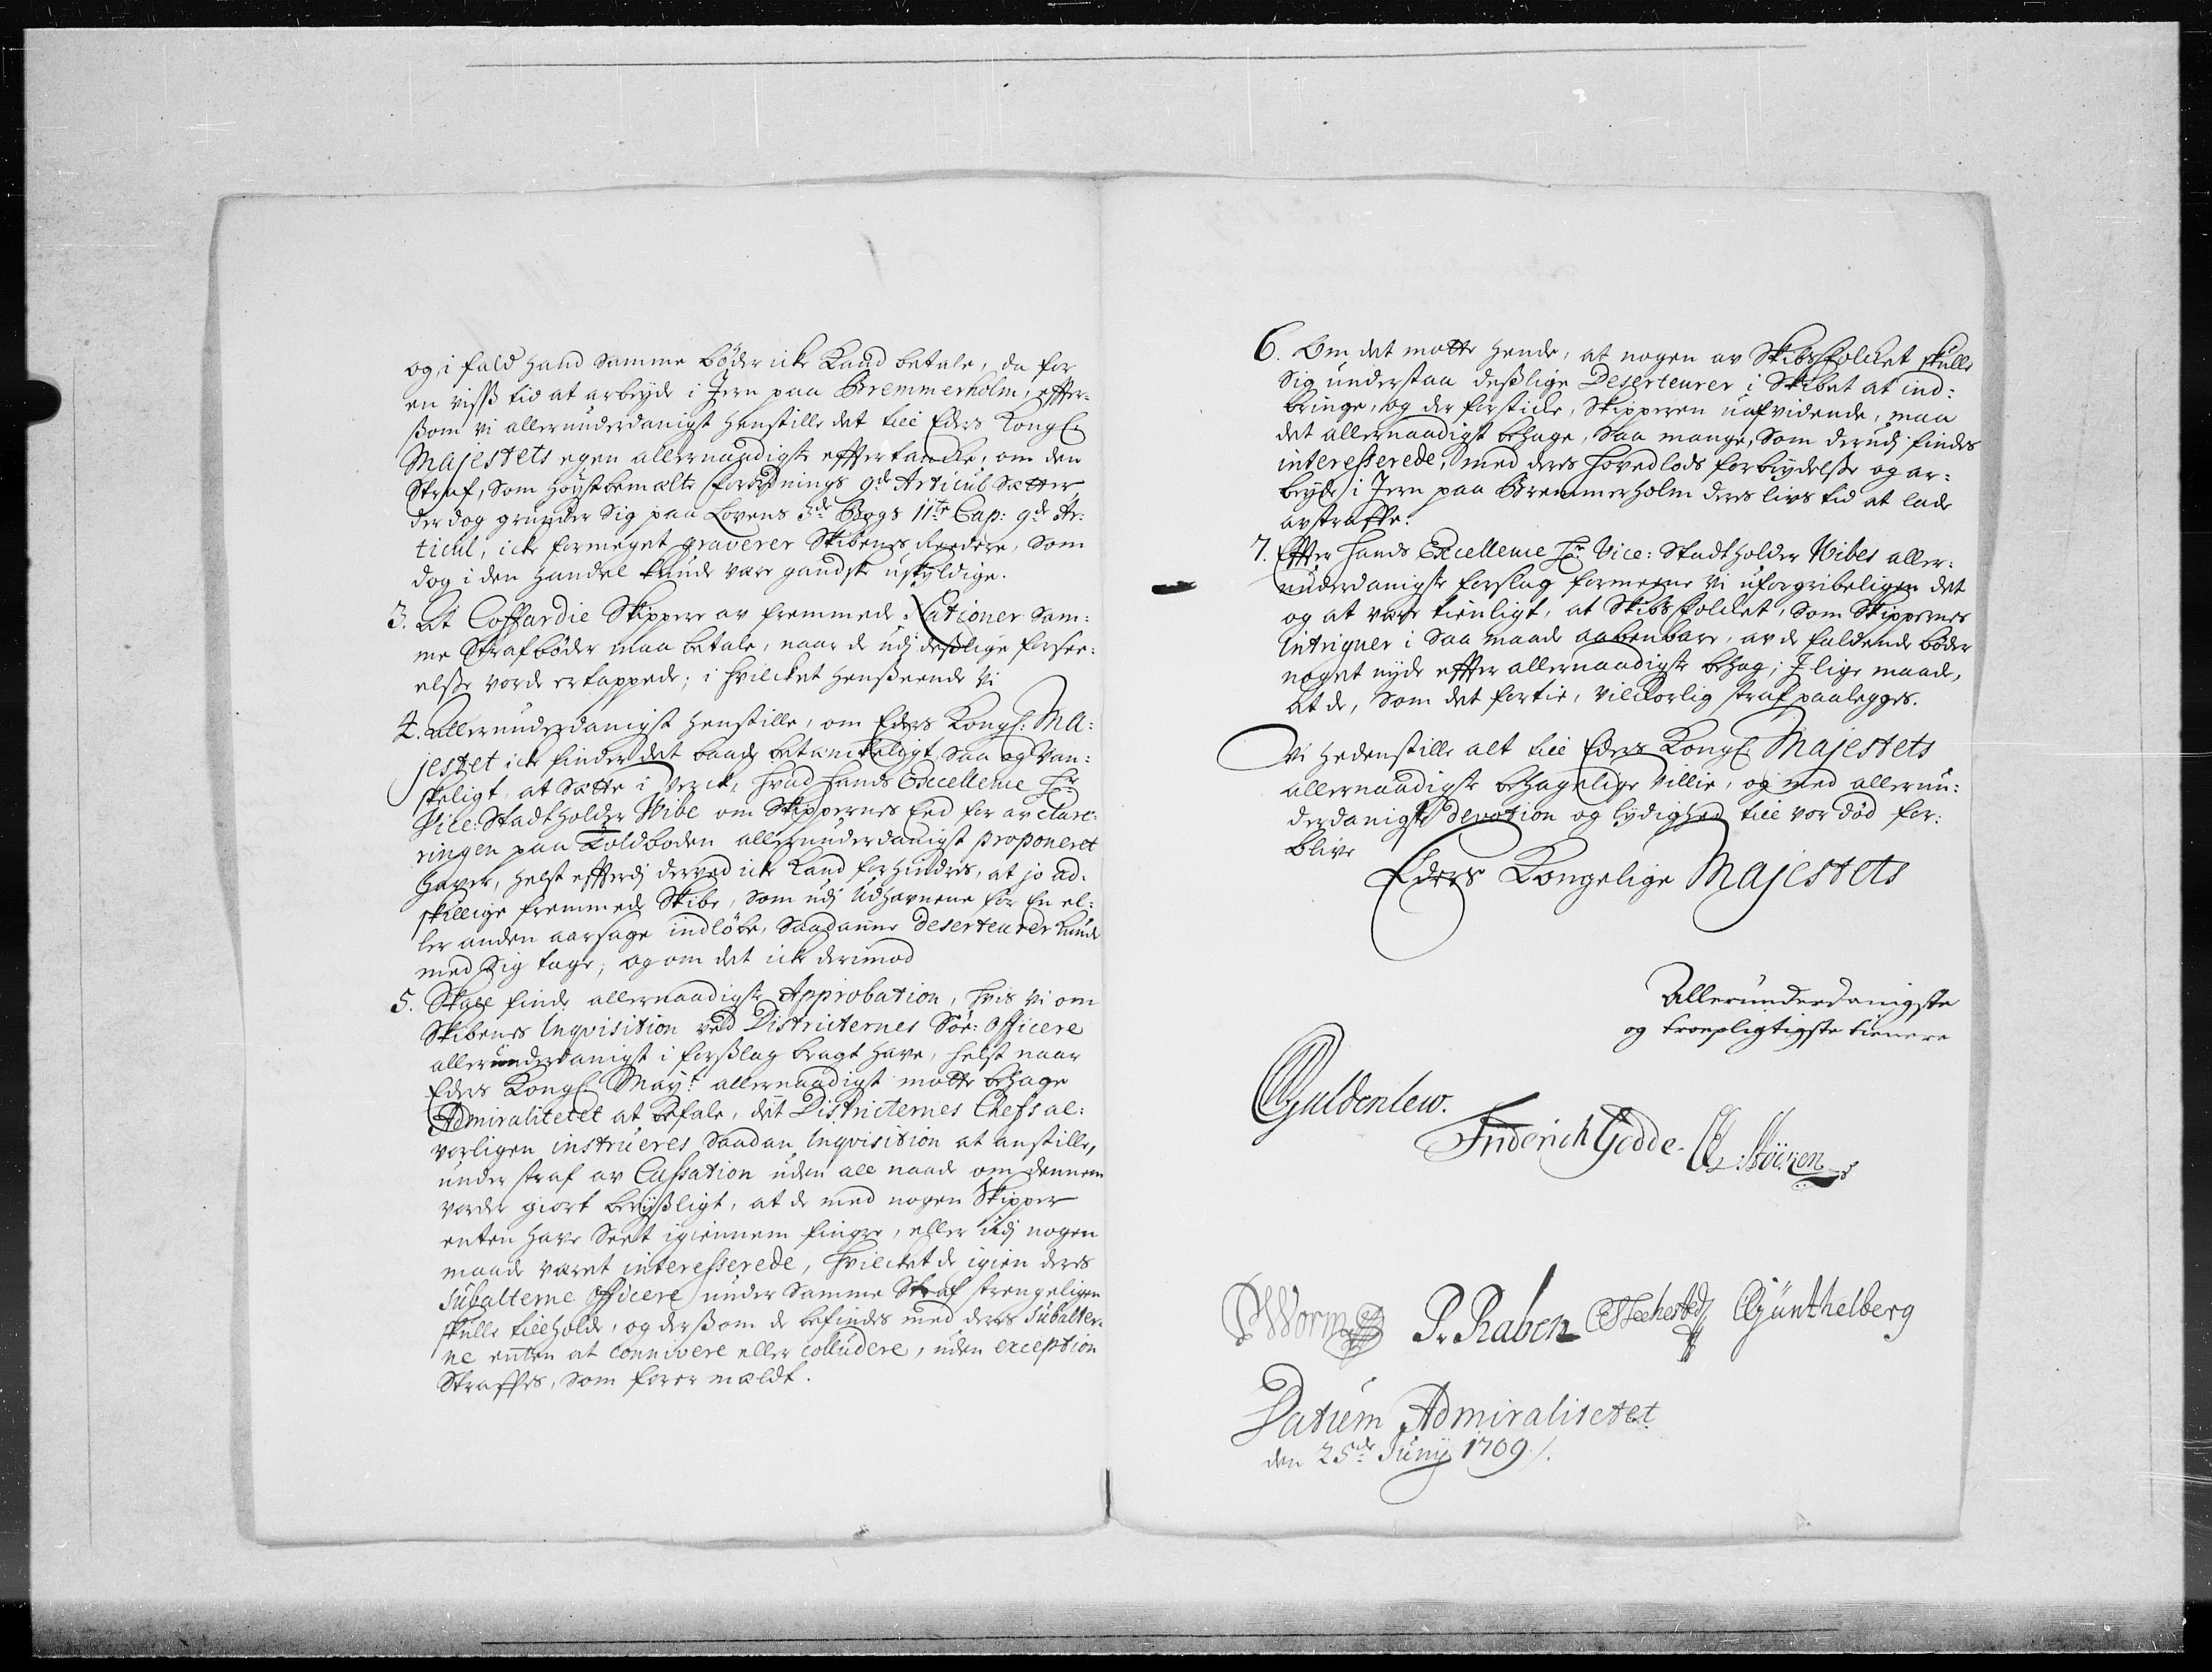 og i fald hand samme bøder icke kand betale, da for
en viss tid at arbeyde i Jern paa Bremmerholm, effter-
ssom vi allerunderdanigst henstille det till Eders Kongl:
Majestets egen allernaadigste effterkancke, om den
Straf, som høystbemælte forordnings 9de Articul sætter,
der dog grunder sig paa Lovens 3de Bogs 11te Cap: 9de Ar:
ticul, icke formeget graverer Skibenes Reedere, som
dog i den handel kunde være gandske uskyldige.
3. At Coffardie Skippere av fremmede Nationer sam:
me Strafbøder maa betale, naar de udj desslige forsee:
elsse vorde ertappede; i hvilcket henseende vi
4. allerunderdanigst henstille, om Eders Kongl: Ma:
jestet icke finder det baade betænckeligt saa og van:
skeligt, at sætte i verck, hvad hands Excellence Hr
Vice: Stadtholder Wibe om Skippernes Eed for av clare:
ringen paa Toldboden allerunderdanigst proponeret
haver, helst effterdj derved icke kand forhindres, at jo ad:
skillige fremmede Skibe, som udj Udhavnene for En el:
ler anden aarsage indløbe, saadanne Deserteurer kunde
med sig tage; og om det icke derimod
5. Skall finde allernaadigste Approbation, hvis vi om
Skibenes Inqvisition ved Districternes Søe: Officere
allerunderdanigst i forsslag bragt have, helst naar
Eders Kongl: Mayt: allernaadigst motte behage
Admiralitetet at befale, det Districternes Chefs al:
vorligen instrueres saadan Inqvisition at anstille,
under straf av Cassation uden all naade om dennem
vorder giort bevissligt, at de med nogen Skipper
enten have seet igiennem fingre, eller udj nogen
maade været interesserede, hvilcket de igien deres
Subalterne Officere under samme Straf strengeligen
skulle tilholde, og derssom de befindes med deres Subalter:
ne enten at connivere eller colludere, uden exception
Straffes, som forermældt.
6. Om det motte hende, at nogen av Skibsfolcket skulle
sig understaa desslige Deserteurer i Skibet at ind:
bringe, og der forsticke, Skipperen uafvidende, maa
det allernaadigst behage, saa mange, som derudj findes
interesserede, med deres hovedlods forbrydelsse og ar:
beyde i Jern paa Bremmerholm deres livs tid at lade
avstraffe.
7. Effter hands Excellence Hr: Vice: Stadtholder Wibes aller:
underdanigste forslag formeene vi uforgribeligen det
og at være tienligt, at Skibsfolcket, som Skippernes
Intriguer i saa maade aabenbare, av de faldende bøder
noget nyde effter allernaadigste behag; I lige maade,
at de, som det fortie, vilckorlig straf paalegges.
Vi hedenstille alt till Eders Kongl: Majestets
allernaadigste behagelige villie, og med allerun:
derdanigste Devotion og lydighed till vor død for:
blive
Eders Kongelige Majestets
Allerunderdanigste
og troepligtigste tienere
Guldenlew.
Friderich Gedde.
Worm P. Raben Günthelberg
Datum Admiralitetet
den 25de Junij 1709 /.